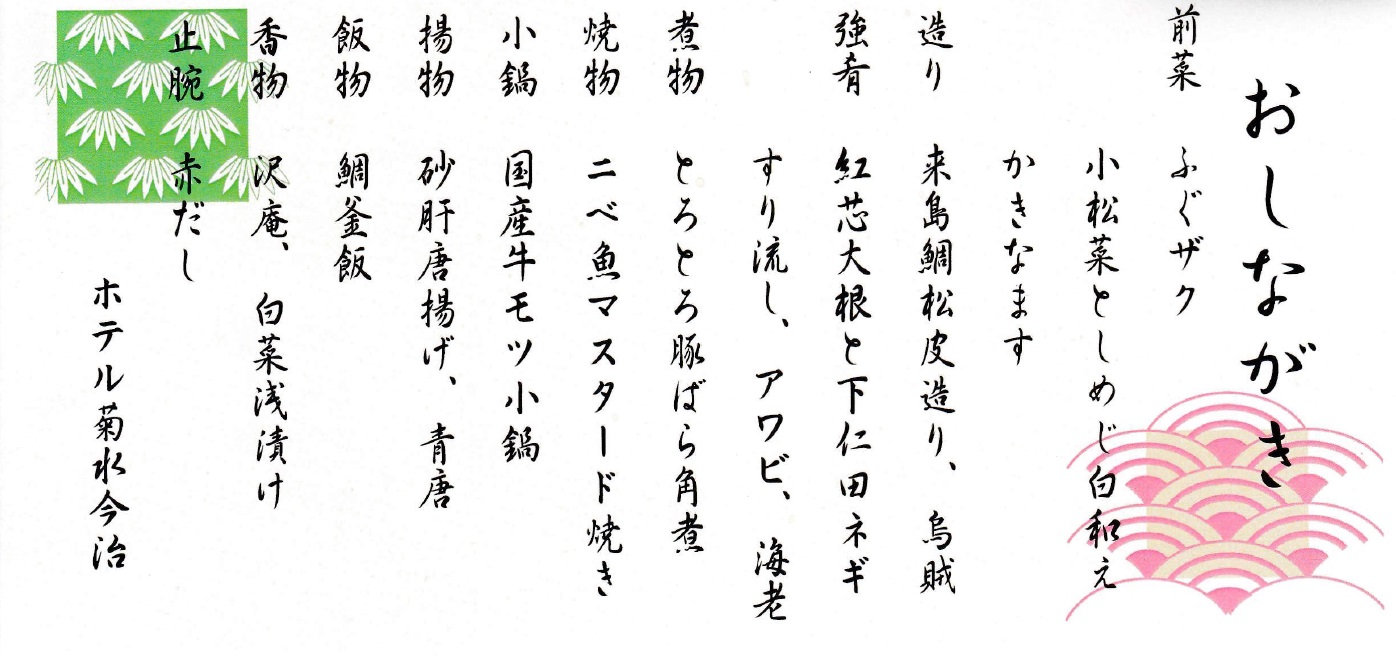 おしながき
前菜 ふぐザク
小松菜としめじ白和え
かきなます
造り 来島鯛松皮造り、烏賊
強肴 紅芯大根と下仁田ネギ
すり流し、アワビ、海老
煮物 とろとろ豚ばら角煮
焼物 ニベ魚マスタード焼き
小鍋 国産牛モツ小鍋
揚物 砂肝唐揚げ、青唐
飯物 鯛釜飯
香物 沢庵、白菜浅漬け
止腕 赤だし
ホテル菊水今治